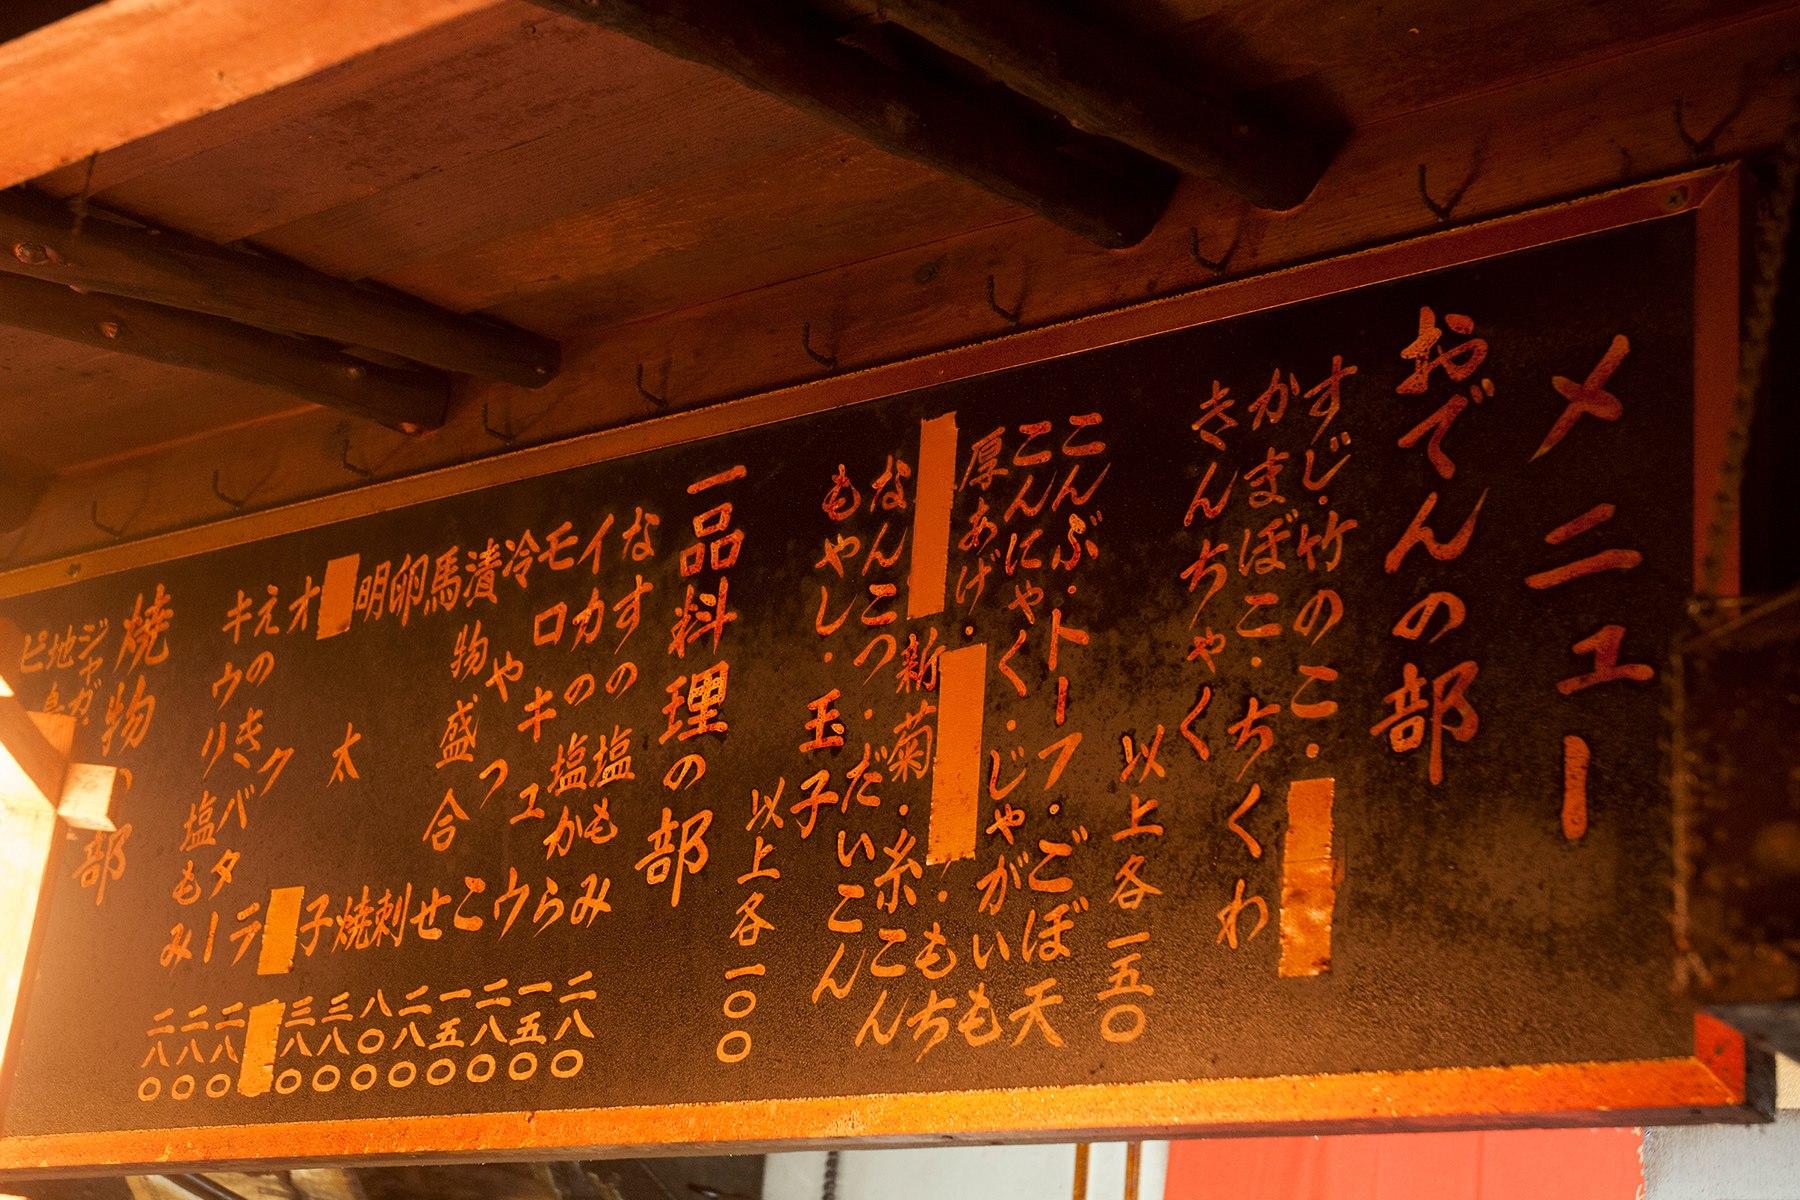 メニュー
おでんの部
すじ・竹のこ・
かまぼこ・ちくわ
きんちゃく
以上各一五〇
こんぶ・トーフ・ごぼ天
こんにゃく・じゃがいも
厚あげ・・もち
新菊・糸こん
なんこつ・だいこん
もやし・玉子
以上各一〇〇
一品料理の部
なすの塩もみ 二八〇
イカの塩から 一五〇
モロキュウ 二八〇
冷やっこ 一五〇
漬物盛合せ 二八〇
馬刺 八〇〇
卵焼 三八〇
明太子 三八〇
オクラ 二八〇
えのきバター 二八〇
キウリ塩もみ 二八〇
焼物の部
ジャガ
地鳥
ピ